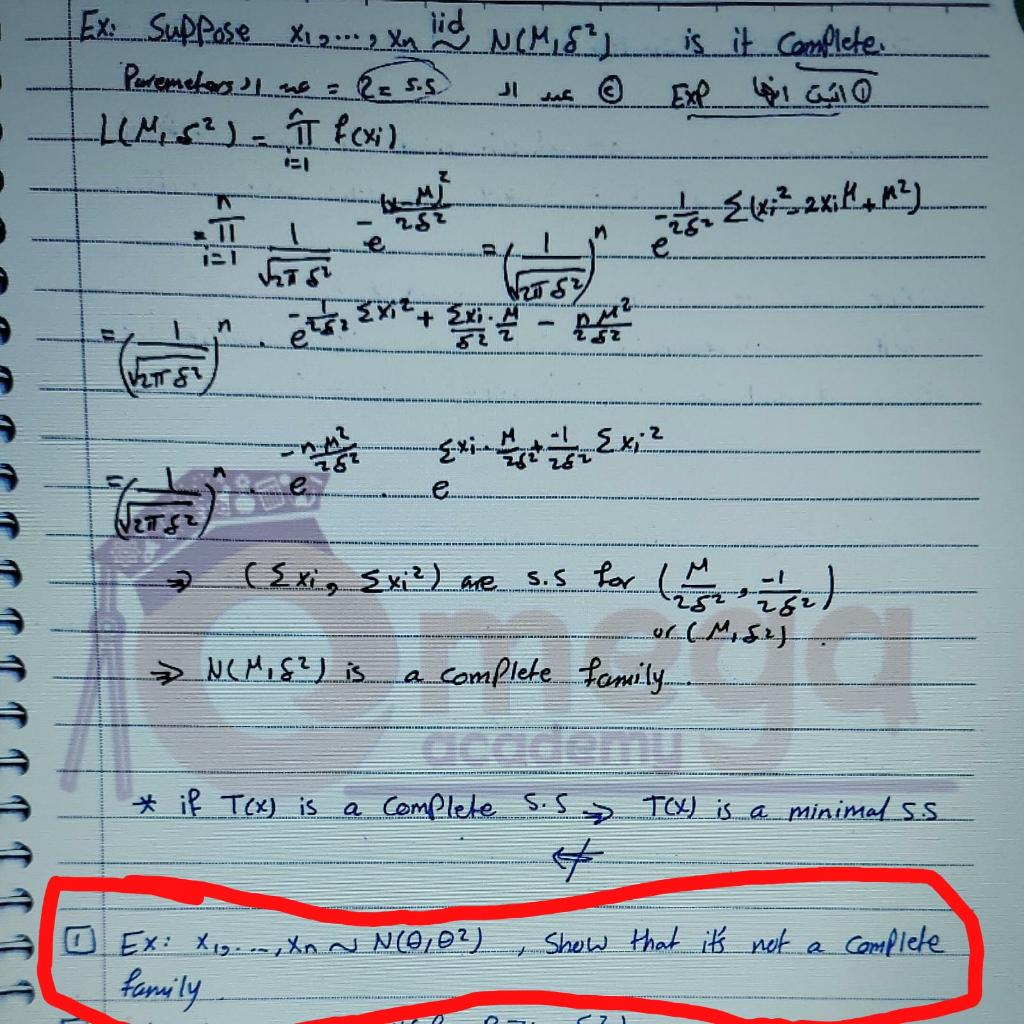 Ex: Suppose x₁,...,xₙ iid ~ N(M,δ²) is it Complete.
① اثبت انها Exp ② عدد الـ s.s = 2 = عدد الـ Paremeters
L(M,δ²) = ∏ᵢ₌₁ⁿ f(xᵢ)
= ∏ᵢ₌₁ⁿ 1/√(2πδ²) e^(-(x-M)²/2δ²) = (1/√(2πδ²))ⁿ e^(-1/2δ² Σ(xᵢ²-2xᵢM+M²))
= (1/√(2πδ²))ⁿ . e^(-1/2δ² Σxᵢ² + Σxᵢ/δ² · M/2 - nM²/2δ²)
= (1/√(2πδ²))ⁿ . e^(-nM²/2δ²) . e^(Σxᵢ · M/2δ² + -1/2δ² Σxᵢ²)
⇒ (Σxᵢ, Σxᵢ²) are s.s for (M/2δ², -1/2δ²)
or (M,δ²).
⇒ N(M,δ²) is a complete family.
Omega
academy
* if T(x) is a Complete S.S ⇒ T(x) is a minimal s.s
⇍
1 Ex: x₁,...,xₙ ~ N(θ,θ²), show that it's not a complete
family